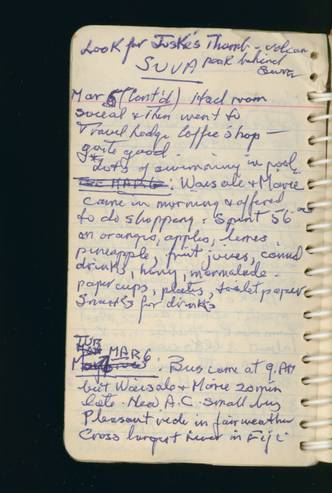 Look for Joske's Thumb - volcan
SUVA peak behind
Mar 5 (Cont'd) Had room
social & then went to
Travel Lodge Coffee shop -
quite good
Lots of swimming in pool
MAR 6: Waisale & Marie
came in morning & offered
to do shopping. Spent 56
on oranges, apples, limes,
pineapple, fruit juices, canned
drinks, honey, marmalade.
paper cups, plates, toilet paper
Snacks for drinks
TUE
MAR 6
: Bus came at 9. AM
but Waisale & Marie 20 min
late. New A.C. small bus
Pleasant ride in fair weather
Cross largest river in Fiji